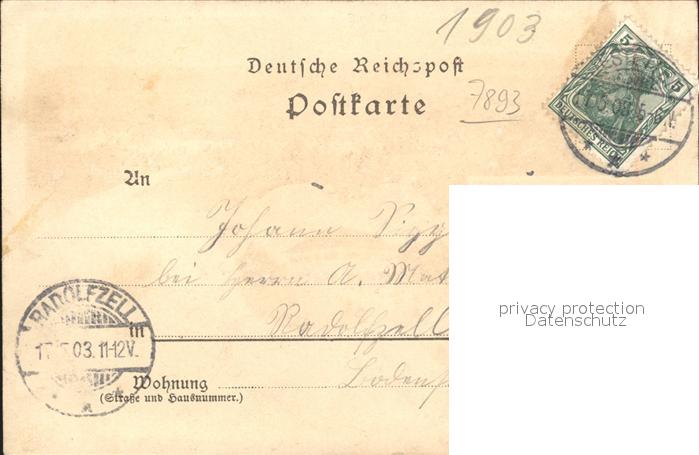 1903
Deutsche Reichspost
Postkarte
7893
5 5
DEUTSCHES REICH
An
Johann
bei Herrn A. Mat
in Radolfzell
Bodens
RADOLFZELL
17.5.03.11-12V.
Wohnung
(Straße und Hausnummer.)
privacy protection
Datenschutz